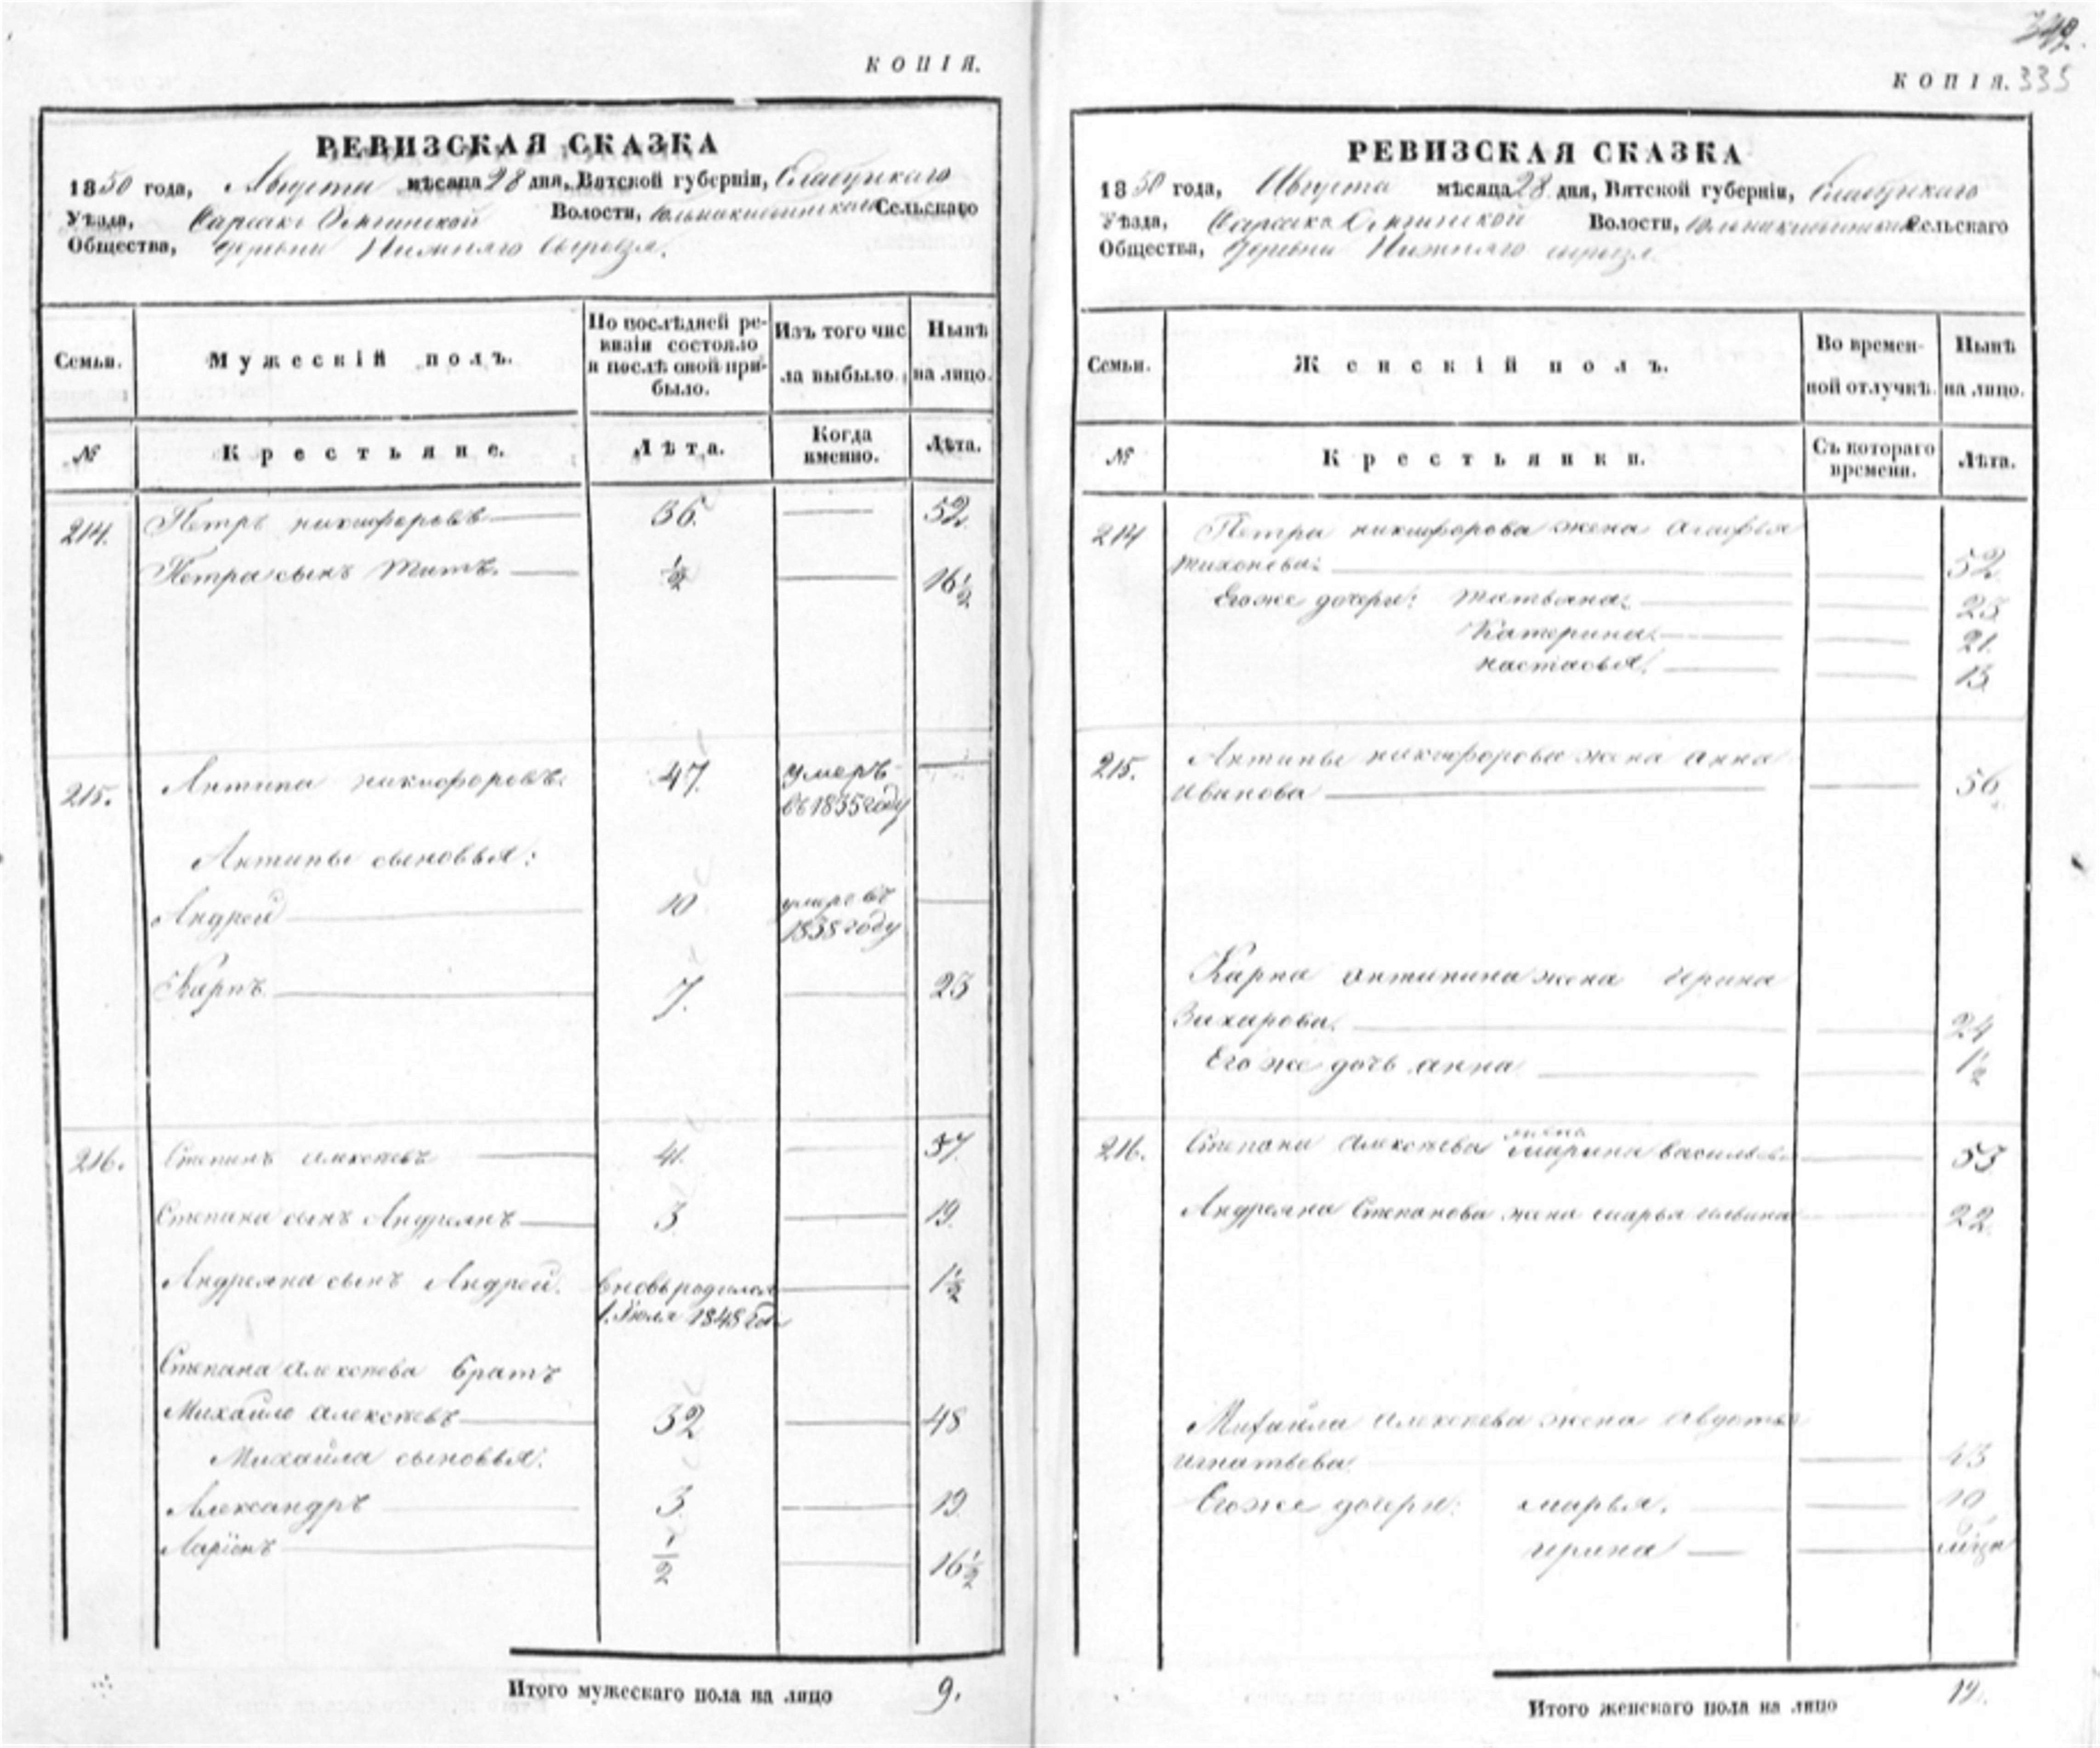 КОПІЯ.
РЕВИЗСКАЯ СКАЗКА
1850 года, Августа мѣсяца 28 дня, Вятской губерніи, Глазунскаго
Уѣзда, Волости, Сельскаго
Общества, деревни Нижняго
Семьи. Мужескій полъ. По послѣдней ре-
визіи состояло
и послѣ оной при-
было. Изъ того чис
ла выбыло. Нынѣ
на лицо.
№ Крестьяне. Лѣта. Когда
именно. Лѣта.
214. Петръ никифоровъ 36. 52.
Петра сынъ титъ. 1/2 16 1/2
215. Антипа никифоровъ. 47. умеръ
въ 1835 году
Антипы сыновья:
Андрей 10 умеръ въ
1838 году
Карпъ 7. 23
216. Степанъ алексѣевъ 41. 57.
Степана сынъ Андреянъ 3 19.
Андреяна сынъ Андрей. вновь родился
1. Іюля 1848 год. 1 1/2
Степана алексѣева братъ
Михайло алексѣевъ 32 48
Михаила сыновья:
Александръ 3. 19
Ларіонъ 1/2 16 1/2
Итого мужескаго пола на лицо 9.
349.
КОПІЯ. 335
РЕВИЗСКАЯ СКАЗКА
1850 года, Августа мѣсяца 28 дня, Вятской губерніи,
Уѣзда, Волости, Сельскаго
Общества, деревни Нижняго
Семьи. Женскій полъ. Во времен-
ной отлучкѣ. Нынѣ
на лицо.
№ Крестьянки. Съ котораго
времени. Лѣта.
214 Петра никифорова жена агафья
тихонова: 52
Егоже дочери: татьяна: 23
Катерина: 21.
настасья: 13
215. Антипы никифорова жена анна
иванова 56
Карпа антипина жена ирина
Захарова. 24
Его же дочь анна 1 1/2
216. Степана алексѣева жена марина васильева 53
Андреяна Степанова жена марья ильина 22.
Михаила алексѣева жена авдотья
игнатьева 43
Егоже дочери: марья. 10
ирина
Итого женскаго пола на лицо 12.